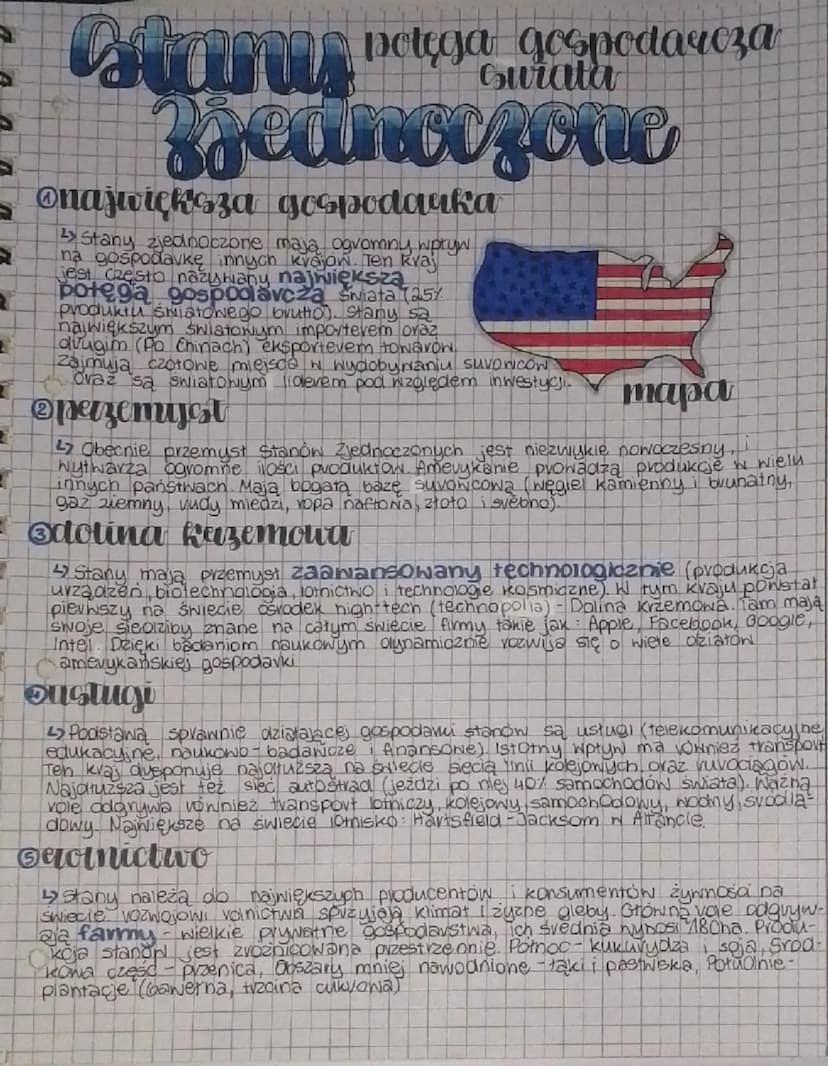 Stany potęga gospodarcza
świata
Zjednoczone
① największa gospodarka
↳ Stany zjednoczone mają ogromny wpływ
na gospodarkę innych krajów. Ten kraj
jest często nazywany największą
potęgą gospodarczą świata (25%
produktu światowego brutto). Stany są
największym światowym importerem oraz
drugim (Po Chinach) eksporterem towarów.
Zajmują czołowe miejsce w wydobywaniu surowców
oraz są światowym liderem pod względem inwestycji.
mapa
② przemysł
↳ Obecnie przemysł Stanów Zjednoczonych jest niezwykle nowoczesny, i
wytwarza ogromne ilości produktów. Amerykanie prowadzą produkcje w wielu
innych państwach. Mają bogatą bazę surowcową (węgiel kamienny i brunatny,
gaz ziemny, rudy miedzi, ropa naftowa, złoto i srebro).
③ dolina krzemowa
↳ Stany mają przemysł zaawansowany technologicznie (produkcja
urządzeń, biotechnologia, lotnictwo i technologie kosmiczne). W tym kraju powstał
pierwszy na świecie ośrodek highttech (technopolia) - Dolina Krzemowa. Tam mają
swoje siedziby znane na całym świecie firmy takie jak: Apple, Facebook, Google,
Intel. Dzięki badaniom naukowym dynamicznie rozwija się o wiele działów
amerykańskiej gospodarki
④ usługi
↳ Podstawą sprawnie działającej gospodarki stanów są usługi (telekomunikacyjne,
edukacyjne, naukowo-badawcze i finansowe). Istotny wpływ ma również transport
Ten kraj dysponuje najdłuższą na świecie siecią linii kolejowych oraz rurociągów.
Najdłuższa jest też sieć autostrad (jeździ po niej 40% samochodów świata). Ważną
role odgrywa również transport lotniczy, kolejowy, samochodowy, wodny, śródlą-
dowy. Największe na świecie lotnisko: Hartsfield-Jacksom w Atlancie.
⑤ rolnictwo
↳ Stany należą do największych producentów i konsumentów żywności na
świecie. rozwojowi rolnictwa sprzyjają klimat i żyzne gleby. Główną role odgryw-
ają farmy - wielkie prywatne gospodarstwa, ich średnia wynosi 180ha. Produ-
kcja stanów jest zróżnicowana przestrzennie. Północ - kukurydza i soja, Środ-
kowa część - pszenica, Obszary mniej nawodnione - łąki i pastwiska, Południe -
plantacje (bawełna, trzcina cukrowa)